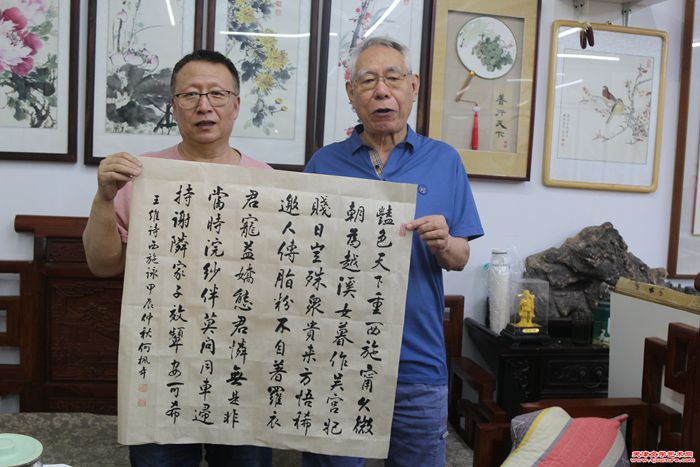 豔色天下重西施甯久微
朝為越溪女暮作吳宮妃
賤日豈殊衆貴来方悟稀
邀人傅脂粉不自著羅衣
君寵益嬌態君憐無是非
當時浣紗伴莫得同車歸
持謝隣家子效顰安可希
王維詩西施詠甲辰仲秋何楓年
善行天下
天津文学艺术网